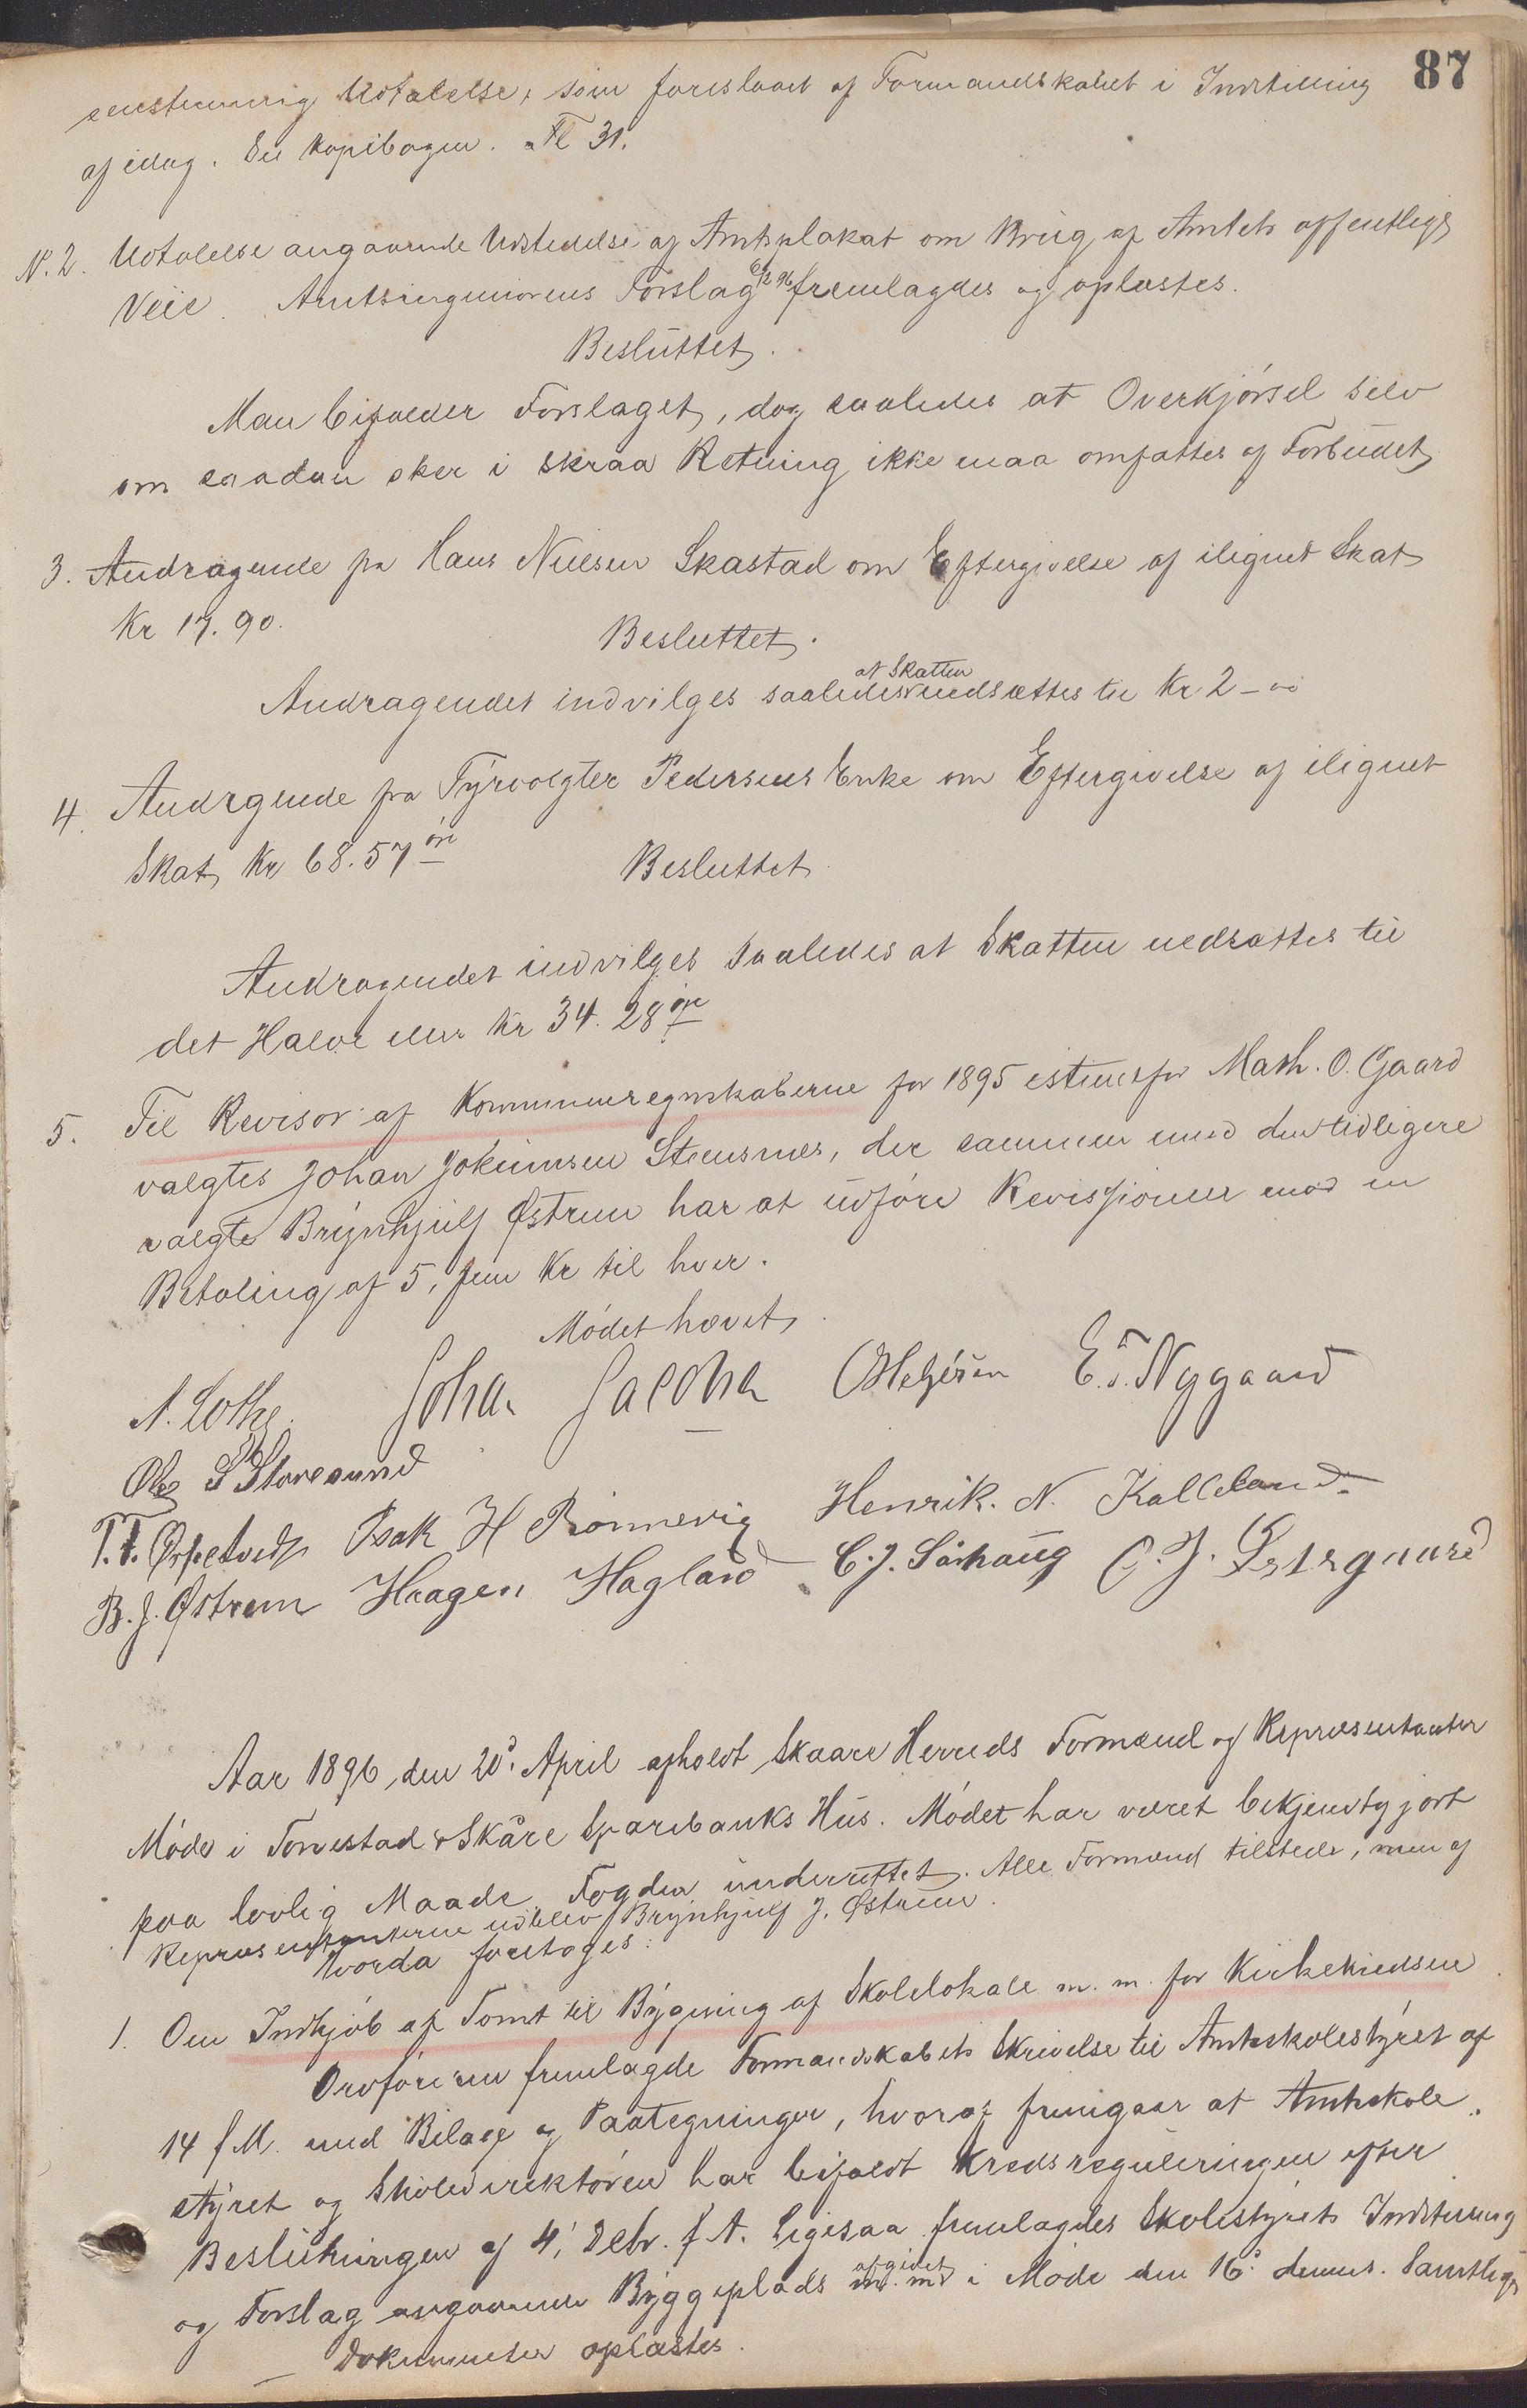 87
enstemmig Udtalelse, som foreslaaet af Formandskabet i Indstilling
af idag. Se Kopibogen. Fl 31.
N. 2. Udtalelse angaaende Udstedelse af Amtsplakat om Brug af Amtets offentlige
Veie. Amtsingeniørens Forslag 6/2 96 fremlagdes og oplæstes.
Besluttet.
Man bifalder Forslaget, dog saaledes at Overkjørsel selv
om saadan sker i skraa Retning ikke maa omfattes af Forbudet
3. Andragende fra Hans Nielsen Skastad om Eftergivelse af ilignet Skat
Kr 17.90.
Besluttet.
Andragendet indvilges saaledes at Skatten nedsættes til Kr 2-00
4. Andrgende fra Fyrvogter Pedersens Enke om Eftergivelse af ilignet
Skat Kr 68.57 øre
Besluttet
Andragendet indvilges saaledes at Skatten nedsættes til
det Halve eller Kr 34.28 øre
5. Til Revisor af Kommuneregnskaberne for 1895 istedetfor Math. O. Gaard
valgtes Johan Jokumsen Stensnes, der sammen med den tidligere
valgte Brynhjulf Østrem har at udføre Revisjionen mod en
Betaling af 5, fem Kr til hver.
Mødet hævet
N. Lothe. Johan Jacobsen E. T. Nygaard
Ole S Storesund
T. T. Ørpetvedt Isak H Rønnevig Henrik. N. Kalleland
B. J. Østrem Haagen Hagland C. J. Sørhaug O. J. Østergaard
Aar 1896, den 20d April afholdt Skaare Herreds Formænd og Repræsentanter
Møde i Torvestad & Skåre Sparebanks Hus. Mødet har været bekjendtgjort
paa lovlig Maade, Fogden underrettet. Alle Formænd tilstede, men af
Repræsentanterne udeblev Brynhjulf J. Østrem.
Hvorda foretoges:
1. Om Indkjøb af Tomt til Bygning af Skolelokale m. m. for Kirkekredsen
Ordføreren fremlagde Formandskabets Skrivelse til Amtsskolestyret af
14 f M. med Bilage og Paategninger, hvoraf fremgaar at Amtsskole
styret og Skoledirektøren har bifaldt Kredsreguleringen efter
Beslutningen af 4, Debr. f A. Ligesaa fremlagdes Skolestyrets Indstilling
og Forslag angaaende Byggeplads m. m. afgivet i Møde den 16d dennes. Samtlige
Dokumenter oplæstes.